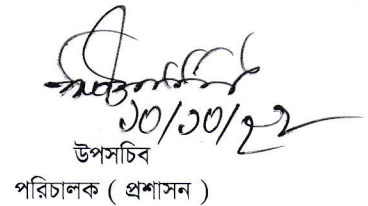 ১০/১০/২২
উপসচিব
পরিচালক ( প্রশাসন )